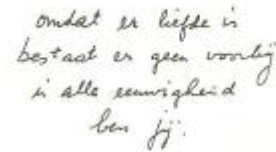 omdat er liefde is
bestaat er geen voorbij
in alle eeuwigheid
ben jij.